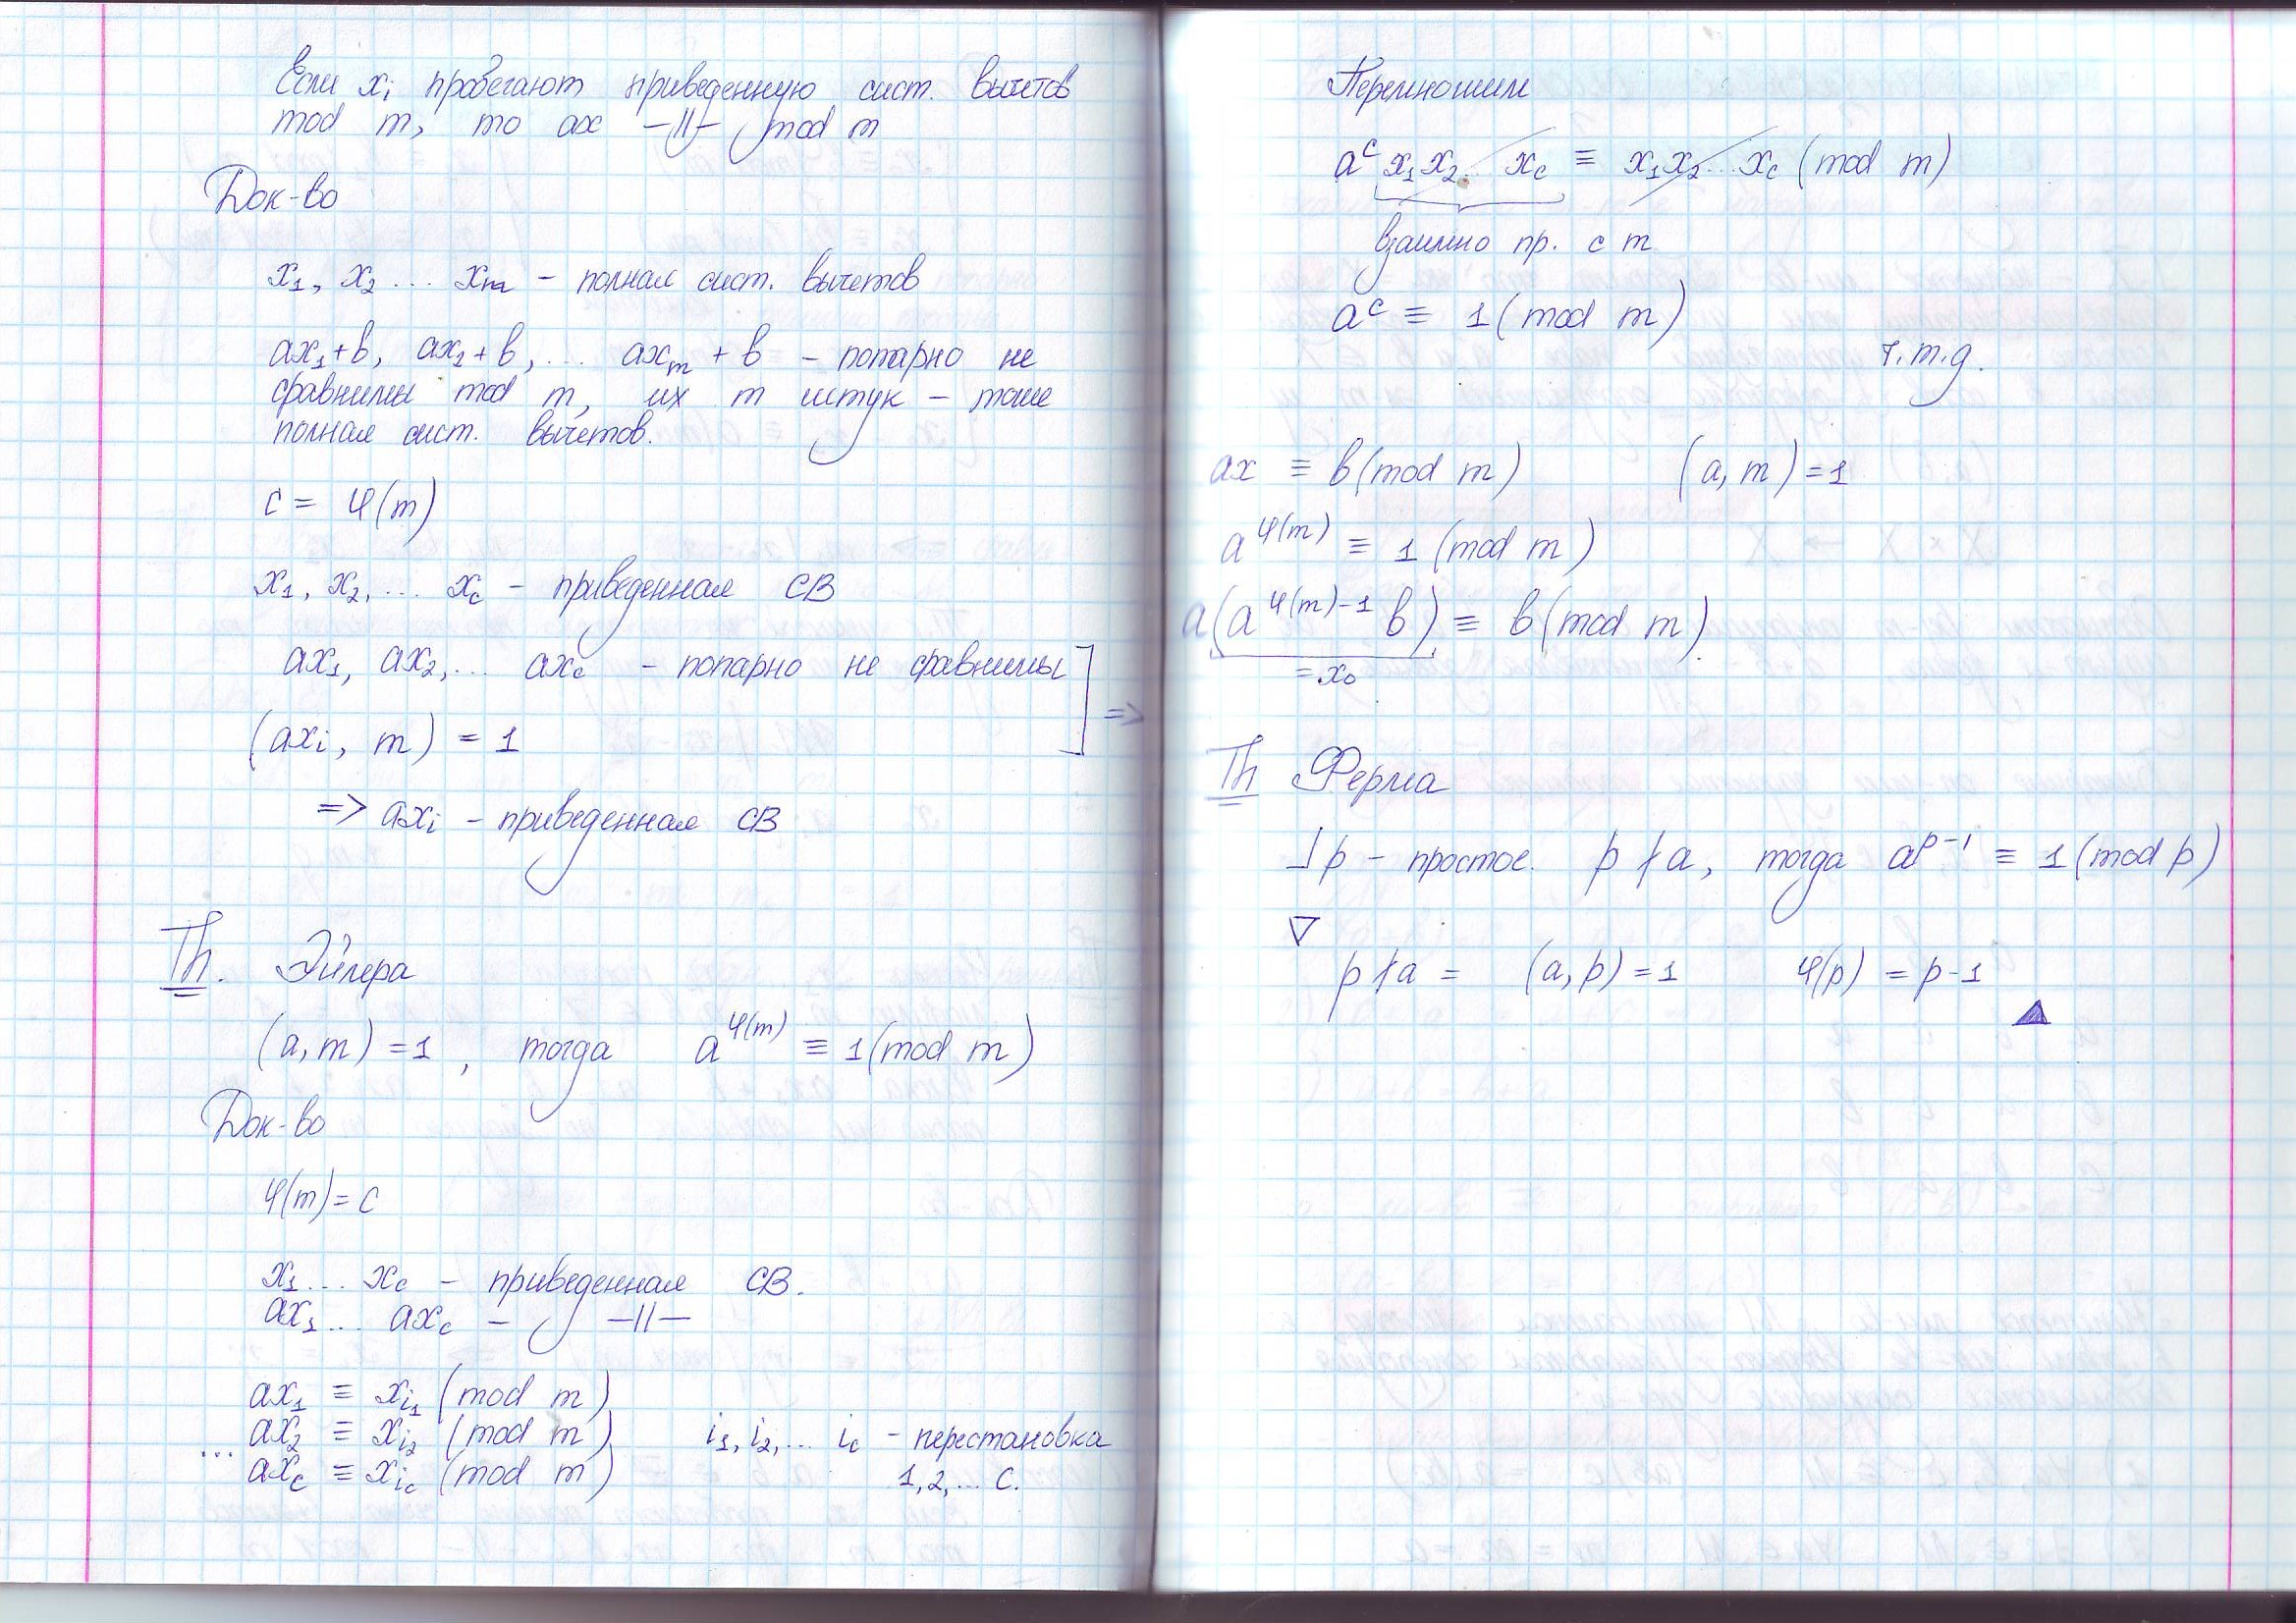 Если xᵢ пробегают приведенную сист. вычетов
mod m, то ax -||- mod m
Док-во
x₁, x₂ ... xₘ - полная сист. вычетов
ax₁+b, ax₂+b, ... axₘ + b - попарно не
сравнимы mod m, их m штук - тоже
полная сист. вычетов.
c = φ(m)
x₁, x₂, ... x_c - приведенная СВ
ax₁, ax₂, ... ax_c - попарно не сравнимы
(axᵢ, m) = 1 ] =>
=> axᵢ - приведенная СВ
Th. Эйлера
(a, m) = 1, тогда a^φ(m) ≡ 1 (mod m)
Док-во
φ(m) = c
x₁ ... x_c - приведенная СВ.
ax₁ ... ax_c - -||-
ax₁ ≡ x_i₁ (mod m)
ax₂ ≡ x_i₂ (mod m) i₁, i₂, ... i_c - перестановка
... ax_c ≡ x_i_c (mod m) 1, 2, ... c.
Перемножим
a^c x₁x₂... x_c ≡ x₁x₂... x_c (mod m)
взаимно пр. с m
a^c ≡ 1 (mod m)
ч.т.д.
ax ≡ b (mod m) (a, m) = 1
a^φ(m) ≡ 1 (mod m)
a(a^(φ(m)-1) b) ≡ b (mod m).
= x₀
Th Ферма
⅃ p - простое. p ∤ a, тогда a^(p-1) ≡ 1 (mod p)
▽
p ∤ a = (a, p) = 1 φ(p) = p-1
▲